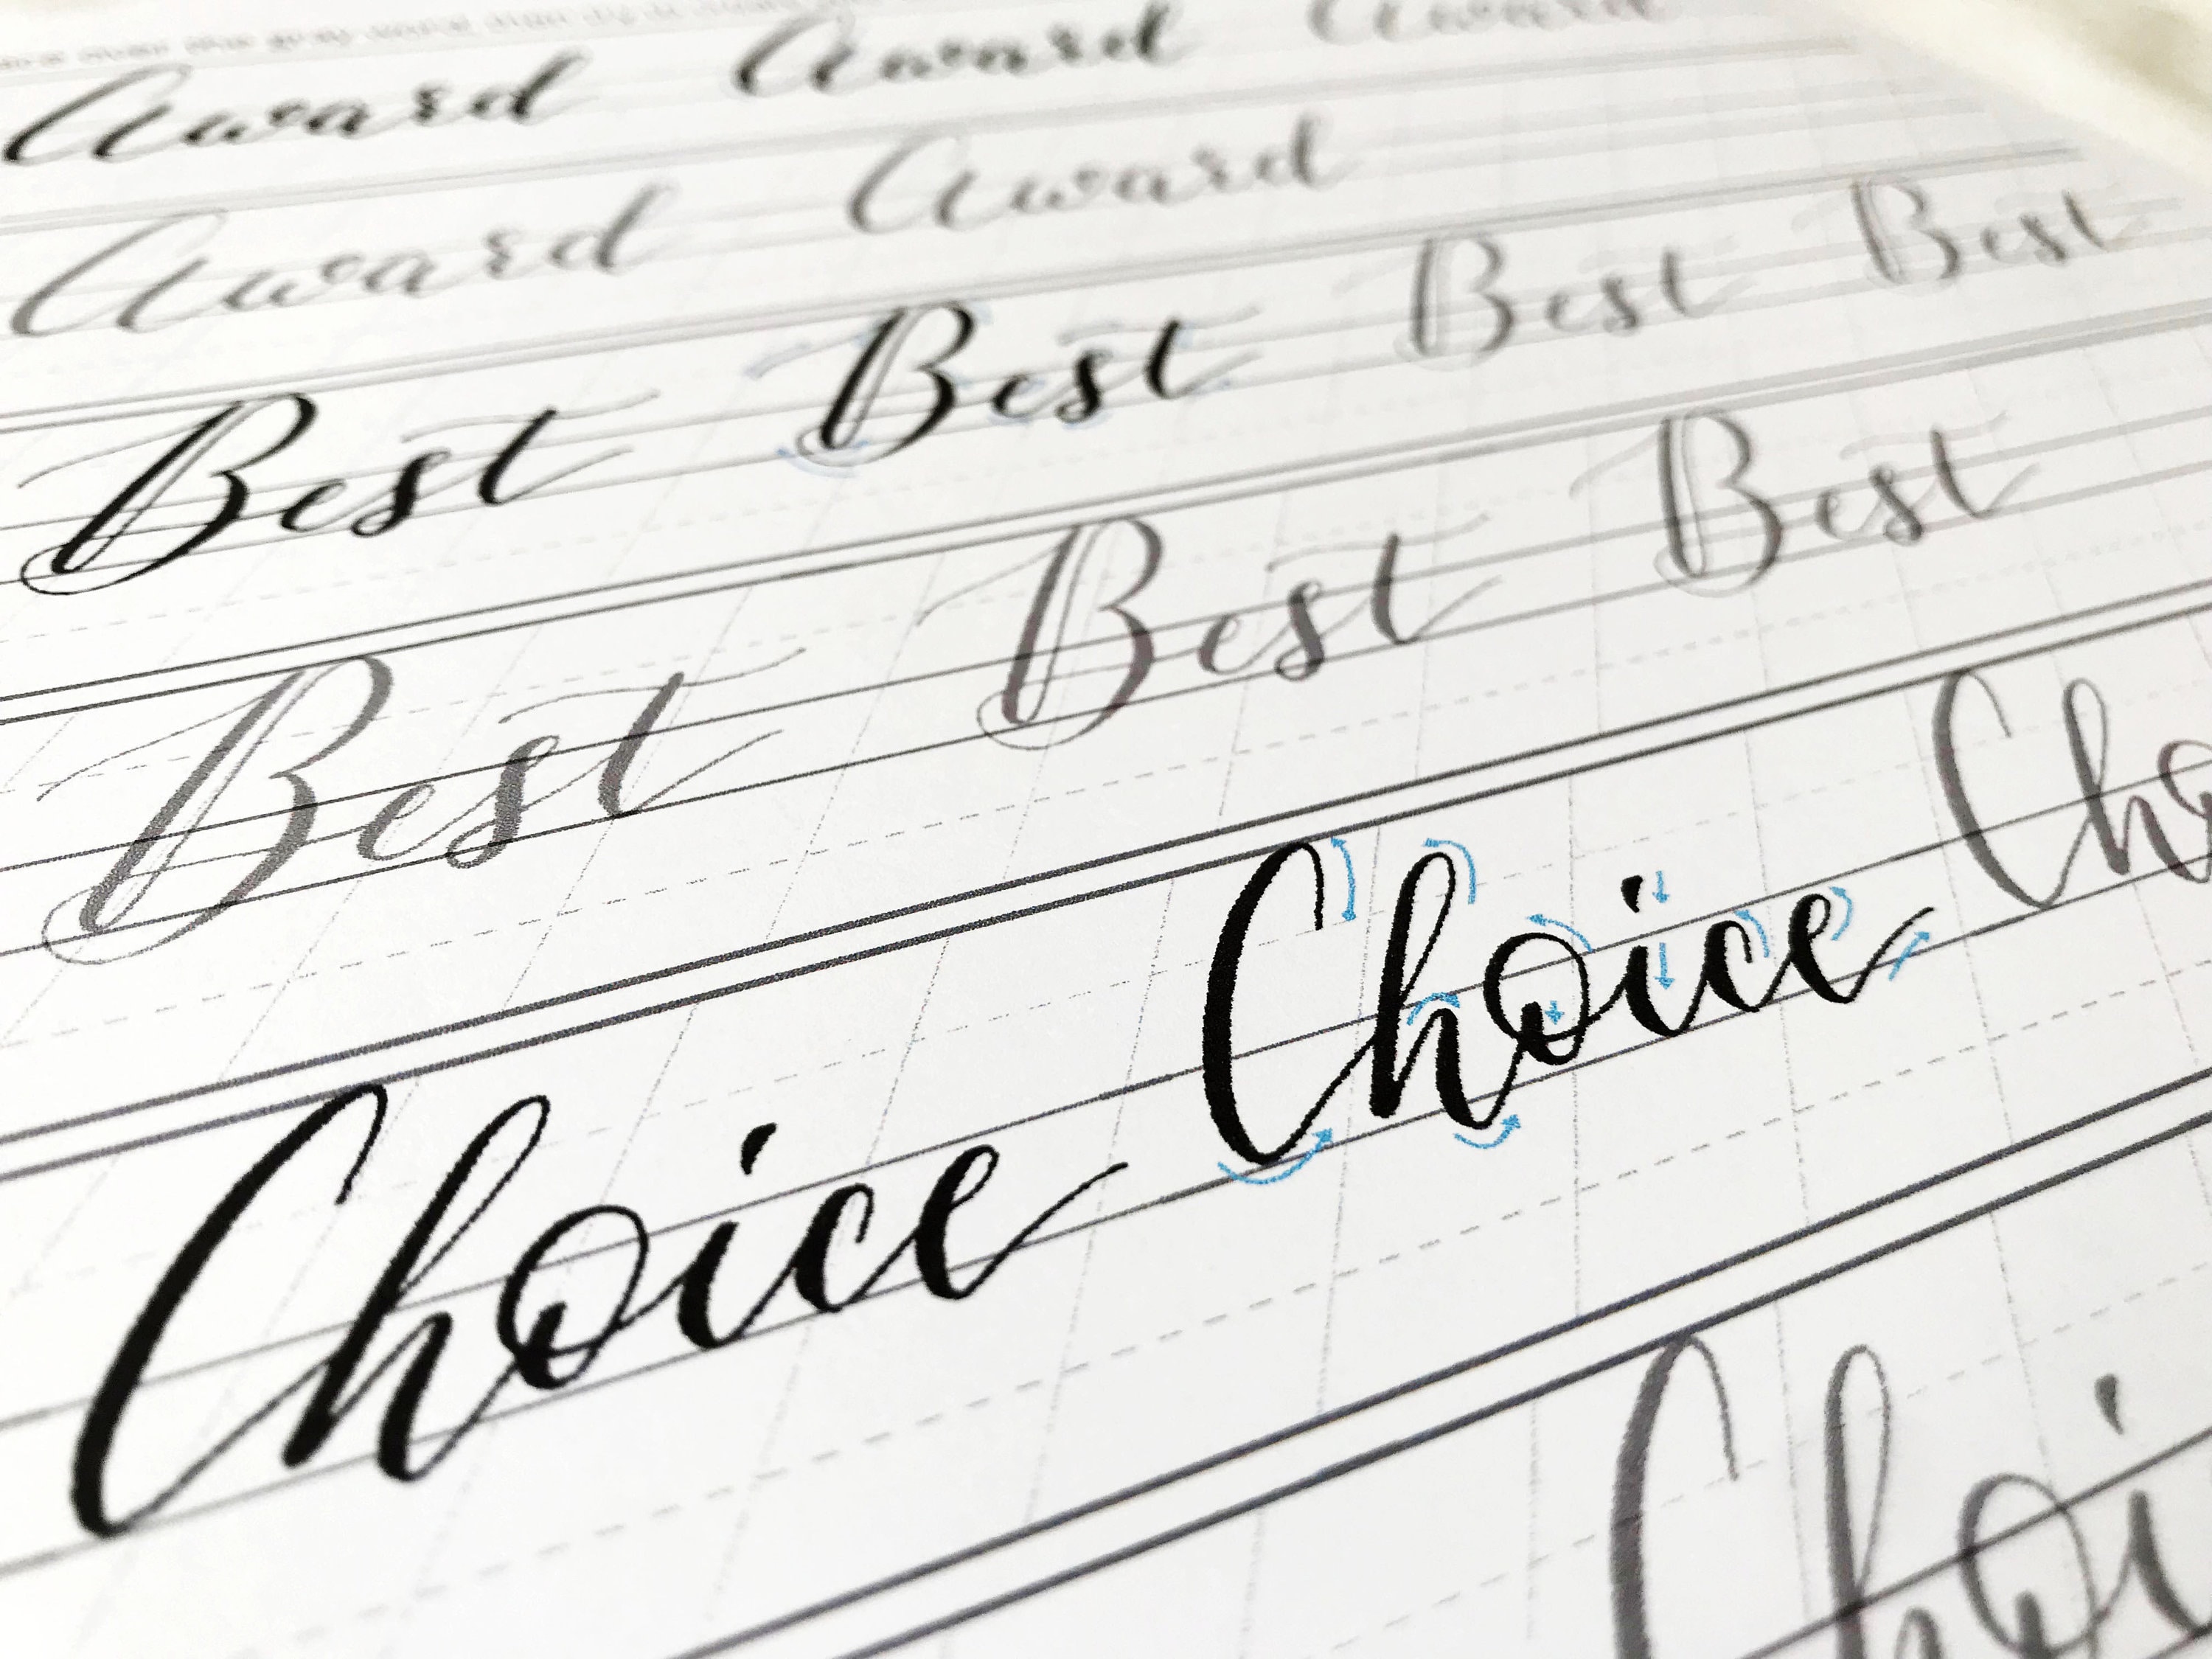 Award Award Award
Award Award
Best Best Best Best
Best Best Best
Choice Choice Cho
Choi